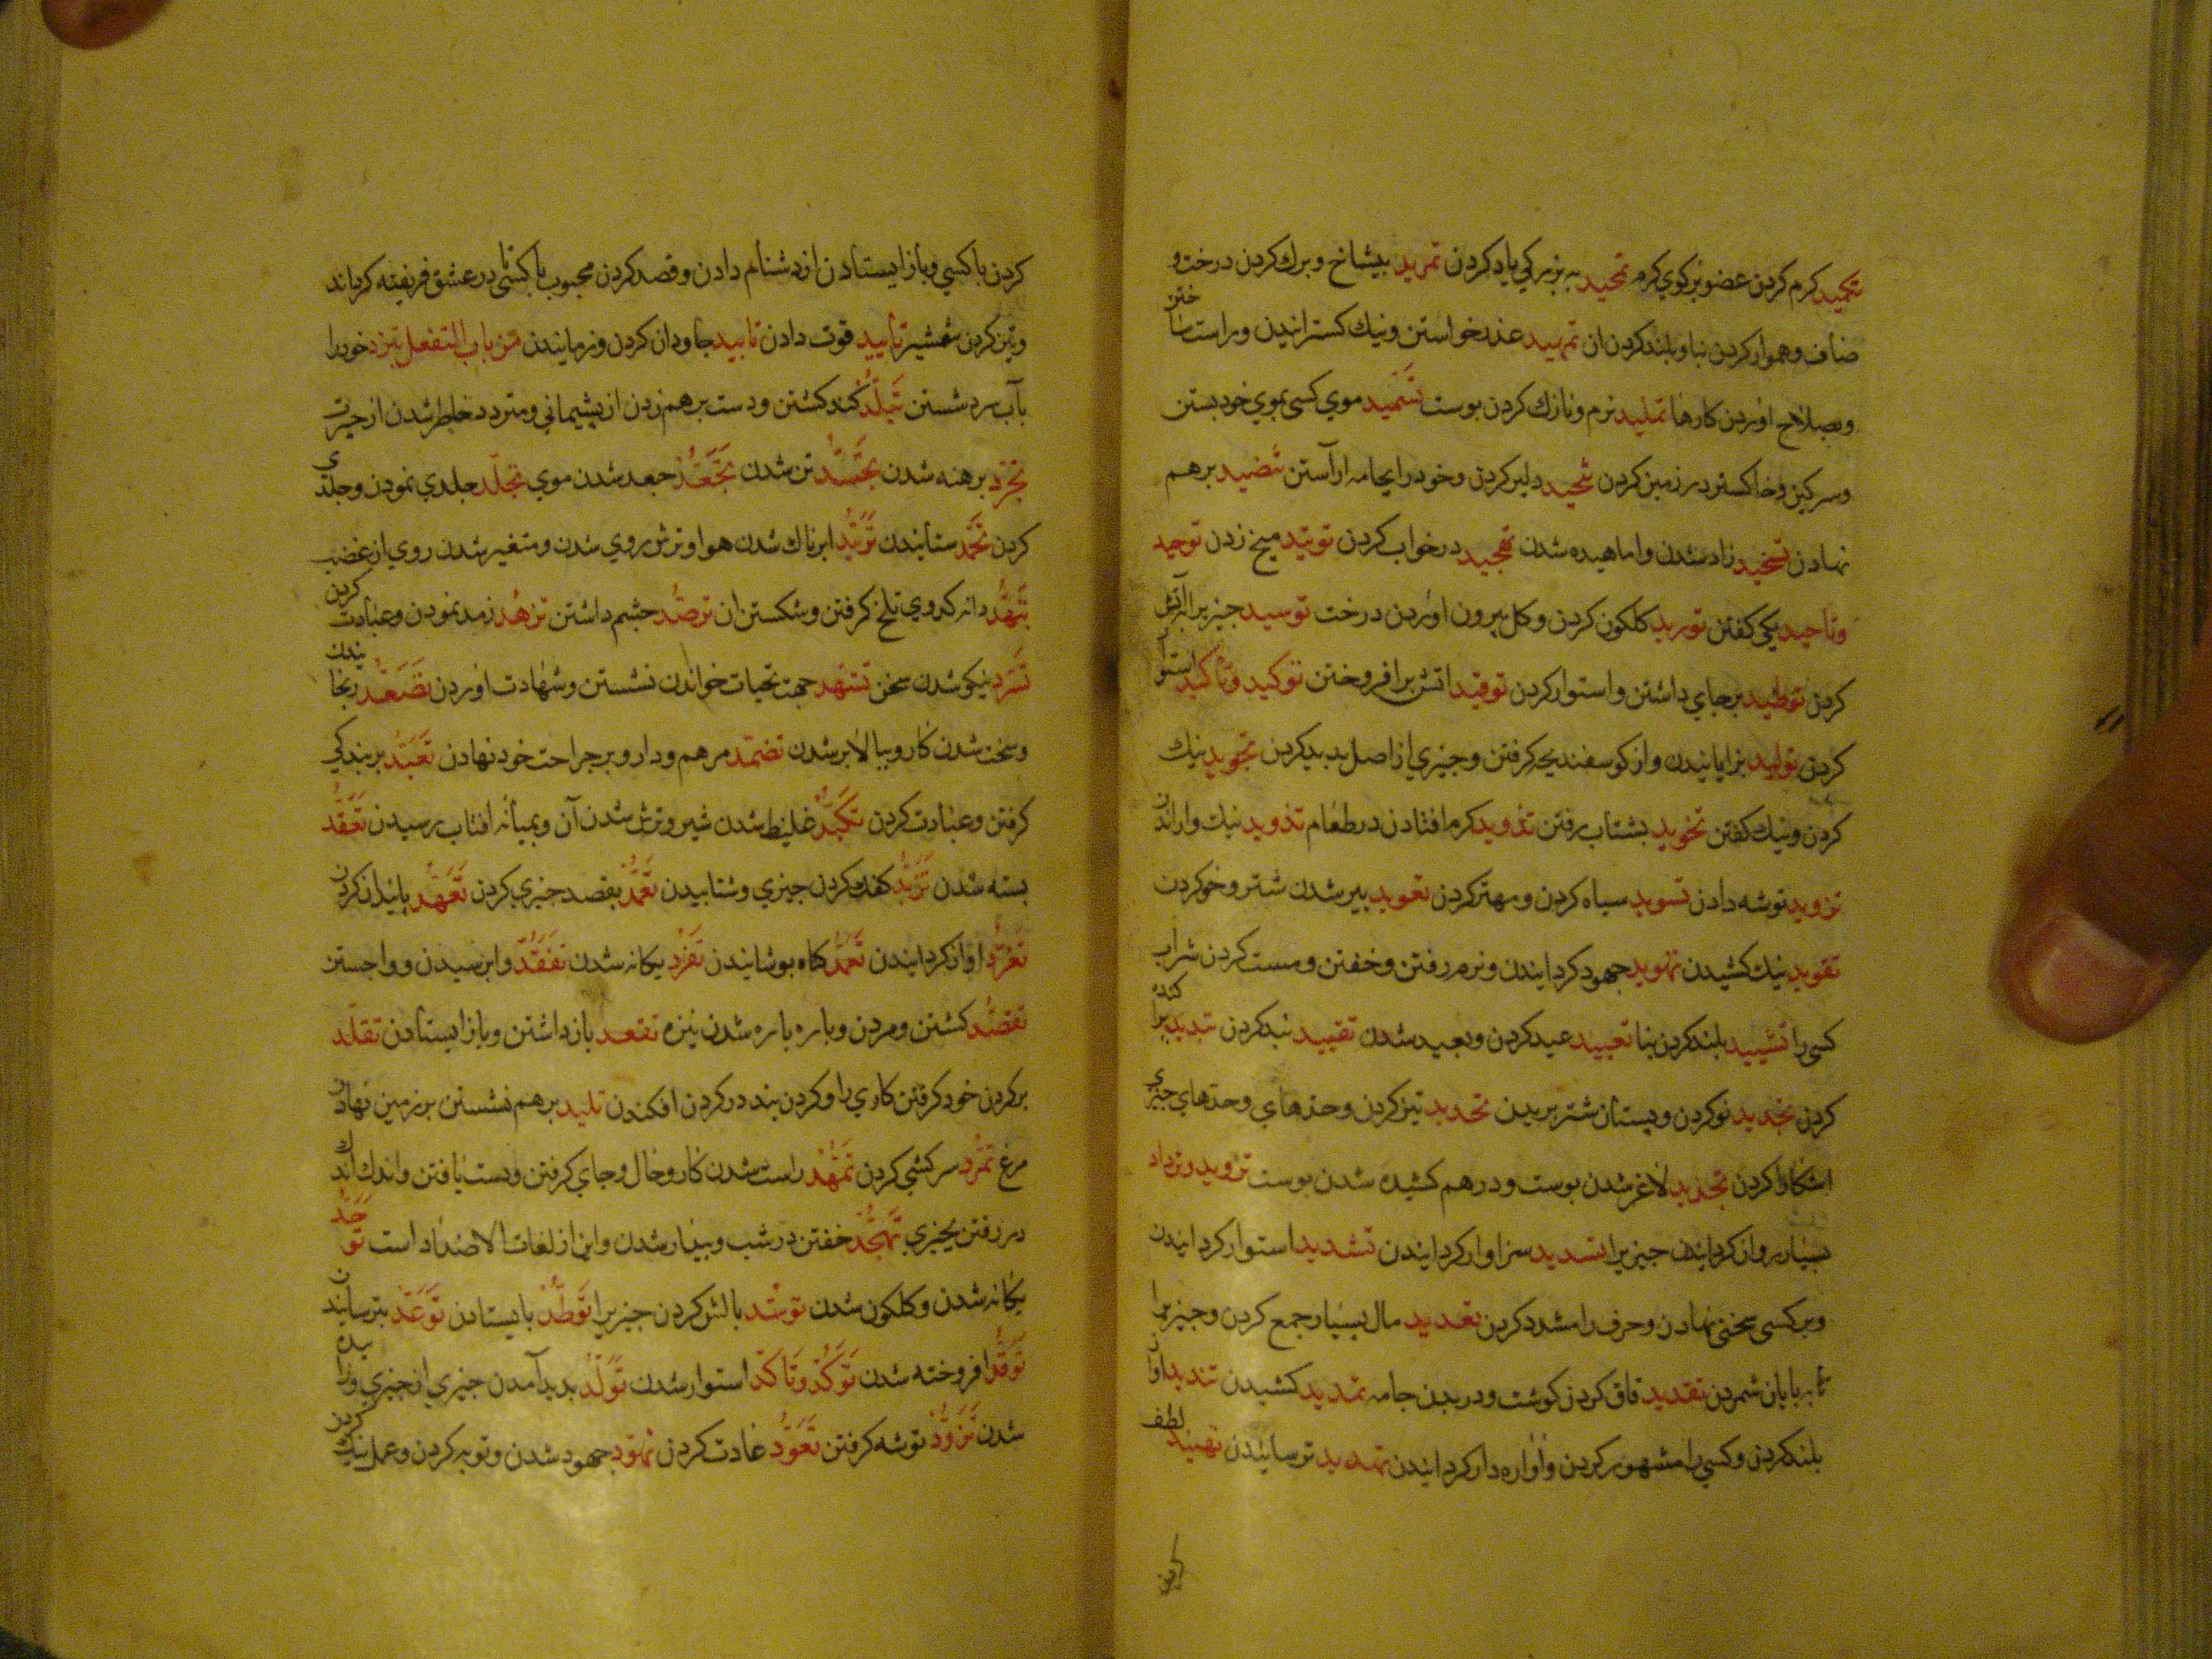 تکمید کرم کردن عضو بر کوی کرم تمجید به بزرکی یاد کردن تمرید بیشاخ و برک کردن درخت و
ضاف و هموار کردن بنا و بلند کردن ان تمهید عذر خواستن و نیك کسترانیدن و راست ساختن
و بصلاح اوردن کارها تملید نرم و نازك کردن بوست تسمید موی کسی بموی خود بستن
و سرکین و خاکستر در زمین کردن تنجید دلیر کردن و خود را بجامه اراستن تنضید برهم
نهادن زاد شدن و اماهیده شدن تهجید در خواب کردن توتید میخ زدن توحید
و تاحید یکی کفتن تورید کلکون کردن و کل بیرون اوردن درخت توسید جیزیرا
کردن توطید برجای داشتن و استوار کردن توقید اتش برافروختن توکید و تاکید استوار
کردن تولید بزایانیدن و از کوسفند بچه کرفتن و جیزی از اصل بدید کردن تجوید نیك
کردن و نیك کفتن تخوید بشتاب رفتن تدوید کرم افتادن در طعام تذوید نیك واراندن
تزوید توشه دادن تسوید سیاه کردن و مهتر کردن تعوید بیر شدن شتر و خو کردن
تقوید نیك کشیدن تهوید جهود کردانیدن و نرم رفتن و خفتن و مست کردن شراب
کسی را تشیید بلند کردن بنا تعیید عید کردن و بعید شدن تقیید بند کردن تبدید براکنده
کردن تجدید نو کردن و بستان شتر بریدن تحدید تیز کردن و حدهای و حدهای جیزی
اشکارا کردن تخدید لاغر شدن بوست و درهم کشیده شدن بوست تردید و ترداد
بسیار بر واز کردانیدن جیزیرا تسدید سزاوار کردانیدن تشدید استوار کردانیدن
و بر کسی سختی نهادن و حرف را مشدد کردن تعدید مال بسیار جمع کردن و جیزیرا
تا به بایان شمردن تقدید قاق کردن کوشت و دریدن جامه تمدید کشیدن تندید اواز
بلند کردن و کسی را مشهور کردن و اواره دار کردانیدن تهدید ترسانیدن تهنید لطف
کردن
کردن با کسی و باز ایستادن از دشنام دادن و قصد کردن محبوب با کسی تا در عشق فریفته کرداند
و تیز کردن شمشیر تایید قوت دادن تابید جاودان کردن و رمانیدن من باب التفعل تبرد خود را
بآب سرد شستن تبلد کند کشتن و دست برهم زدن از پشیمانی و متردد خاطر شدن از حیرت
تجرد برهنه شدن تجسد تن شدن تجعد جعد شدن موی تجلد جلدی نمودن و جلدی
کردن تحمد ستانیدن تربد ابر ناك شدن هوا و ترش روی شدن و متغیر شدن روی از غضب
تهبد دانه کدوی تلخ کرفتن و شکستن ان ترصد چشم داشتن تزهد زهد نمودن و عبادت کردن
تسرد نیکو شدن سخن تشهد جهت تحیات خواندن نشستن و شهادت اوردن تصعد رنجانیدن
و سخت شدن کار و ببالا بر شدن تضمد مرهم و دارو بر جراحت خود نهادن تعبد بر بندکی
کرفتن و عبادت کردن تکبد غلیظ شدن شیر و ترش شدن آن و بمیانه افتاب رسیدن تعقد
بسته شدن تزبد کفك کردن جیزی و شتابیدن تعمد بقصد جیزی کردن تعهد پایندان کردن
تغرد اواز کردانیدن تغمد کناه بوشانیدن تفرد یکانه شدن تفقد وابرسیدن و واجستن
تقصد کشتن و مردن و باره باره شدن نیزه تقعد باز داشتن و باز ایستادن تقلد
بر کردن خود کرفتن کاری را و کردن بند در کردن افکندن تلبد برهم نشستن بر زمین نهادن
مرغ تمرد سرکشی کردن تمهد راست شدن کار و حال و جای کرفتن و دست یافتن و اندك اندك
در رفتن بجیزی تهجد خفتن در شب و بیدار شدن و این از لغات الاضداد است توحد
یکانه شدن و کلکون شدن توسد بالش کردن جیزیرا توطد بایستادن توعد بترسانیدن
توقد افروخته شدن توکد و تاکد استوار شدن تولد بدید آمدن جیزی از جیزی و زاییده
شدن تزود توشه کرفتن تعود عادت کردن تهود جهود شدن و توبه کردن و عمل نیك کردن